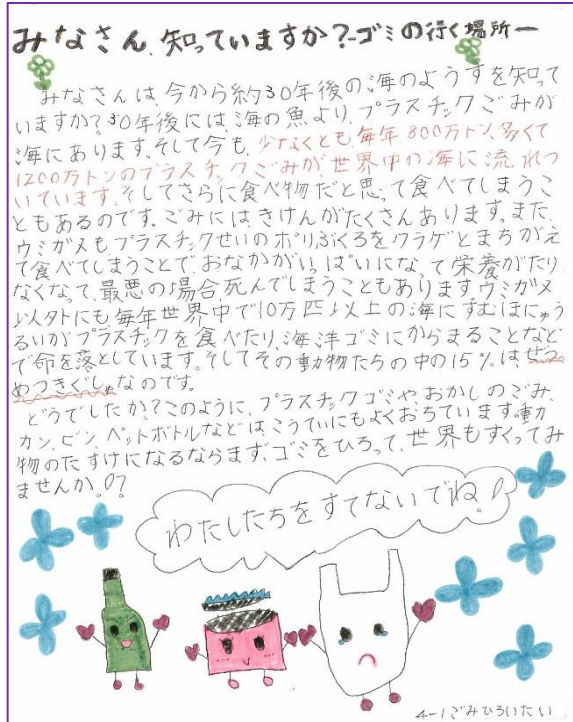 みなさん、知っていますか？-ゴミの行く場所-
みなさんは、今から約30年後の海のようすを知って
いますか？30年後には、海の魚より、プラスチックごみが
海にあります。そして今も、少なくとも、毎年、800万トン、多くて
1200万トンのプラスチックごみが、世界中の海に流れつ
いています。そしてさらに食べ物だと思って食べてしまうこ
ともあるのです。ごみにはきけんがたくさんあります。また、
ウミガメもプラスチックせいのポリぶくろをクラゲとまちがえ
て食べてしまうことで、おなかがいっぱいになって栄養がたり
なくなって、最悪の場合、死んでしまうこともありますウミガメ
以外にも毎年世界中で10万匹以上の海にすむほにゅう
るいがプラスチックを食べたり、海洋ゴミにからまることなど
で命を落としています。そしてその動物たちの中の15%はぜつ
めつきぐしゅなのです。
どうでしたか？このように、プラスチックゴミや、おかしのごみ、
カン、ビン、ペットボトルなどは、こうていにもよくおちています。動
物のたすけになるならまず、ゴミをひろって、世界もすくってみ
ませんか。!?
わたしたちをすてないでね!
4-1ごみひろいたい